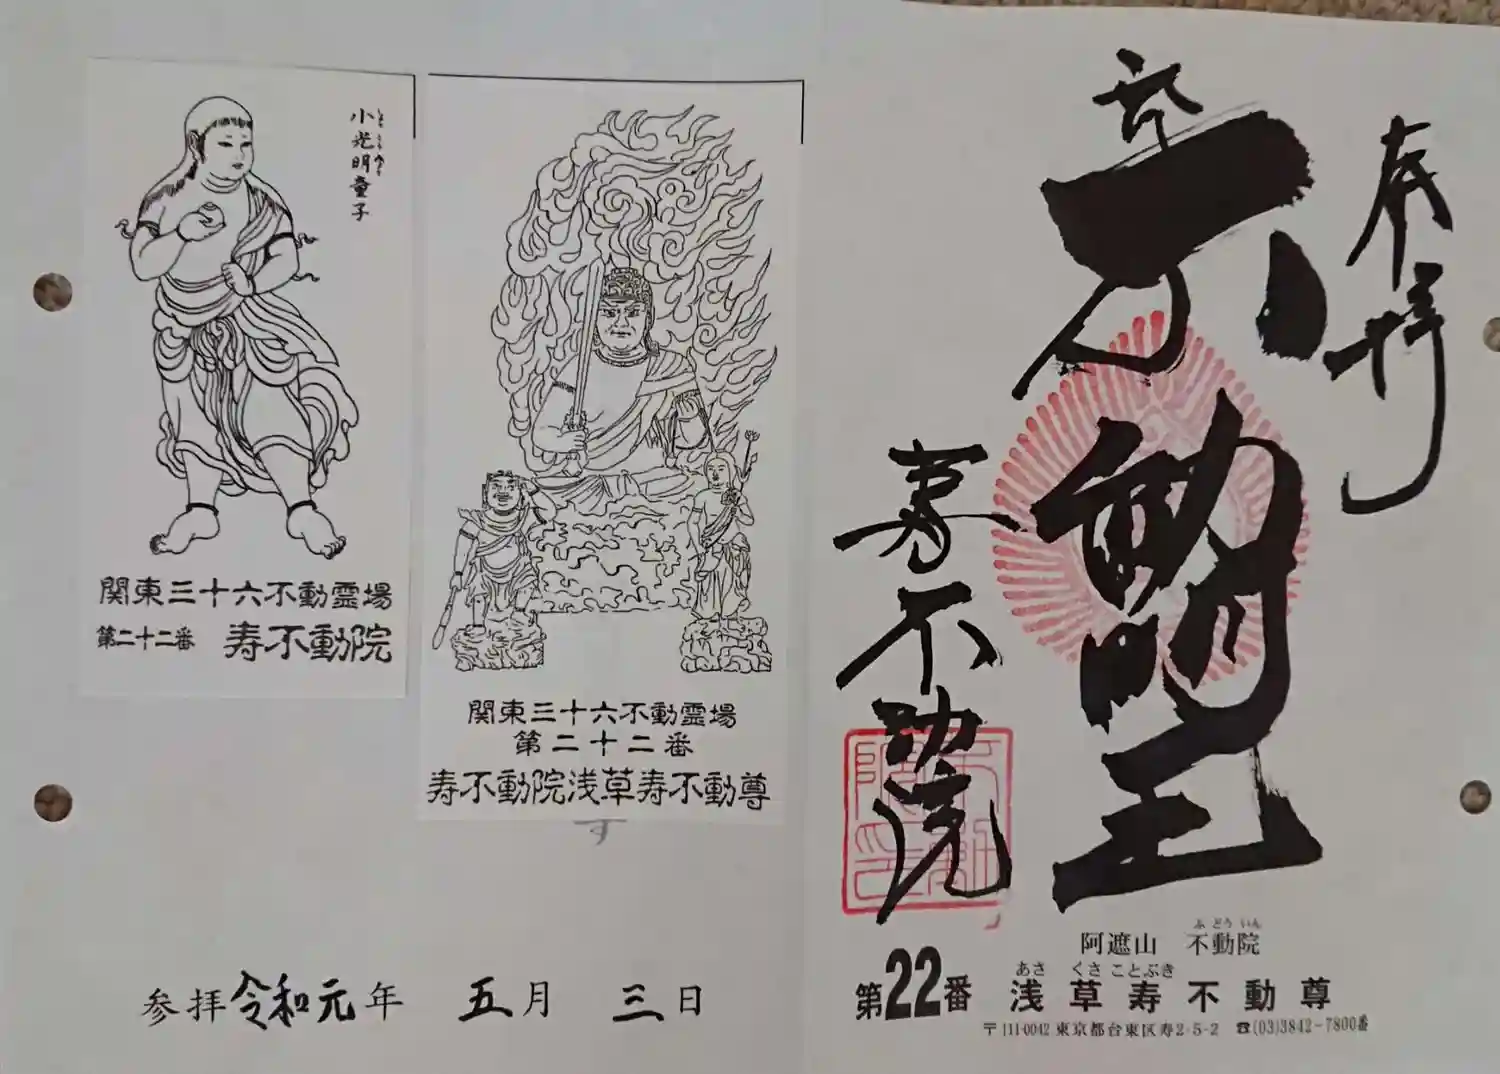 小光明童子
しょうこうみょう
関東三十六不動霊場
第二十二番 寿不動院
関東三十六不動霊場
第二十二番
寿不動院浅草寿不動尊
参拝令和元年 五月 三日
奉拝
不動明王
寿不動院
阿遮山 不動院
ふどういん
あさくさことぶき
第22番 浅草寿不動尊
〒111-0042 東京都台東区寿2-5-2 ☎(03)3842-7800番